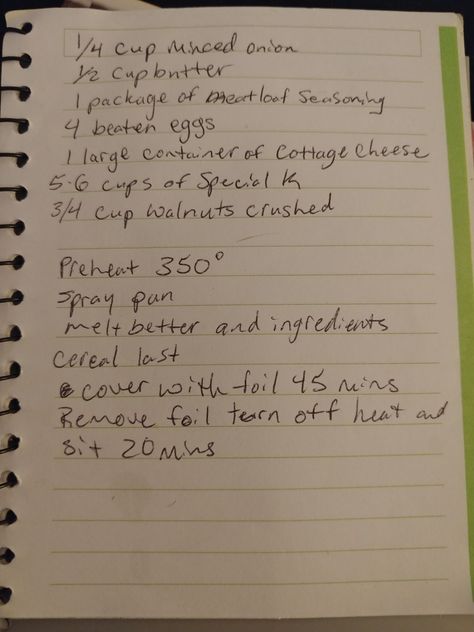 1/4 cup minced onion
1/2 cup butter
1 package of meatloaf seasoning
4 beaten eggs
1 large container of cottage cheese
5-6 cups of Special K
3/4 cup walnuts crushed
Preheat 350°
Spray pan
melt better and ingredients
cereal last
cover with foil 45 mins
Remove foil tern off heat and
sit 20 mins